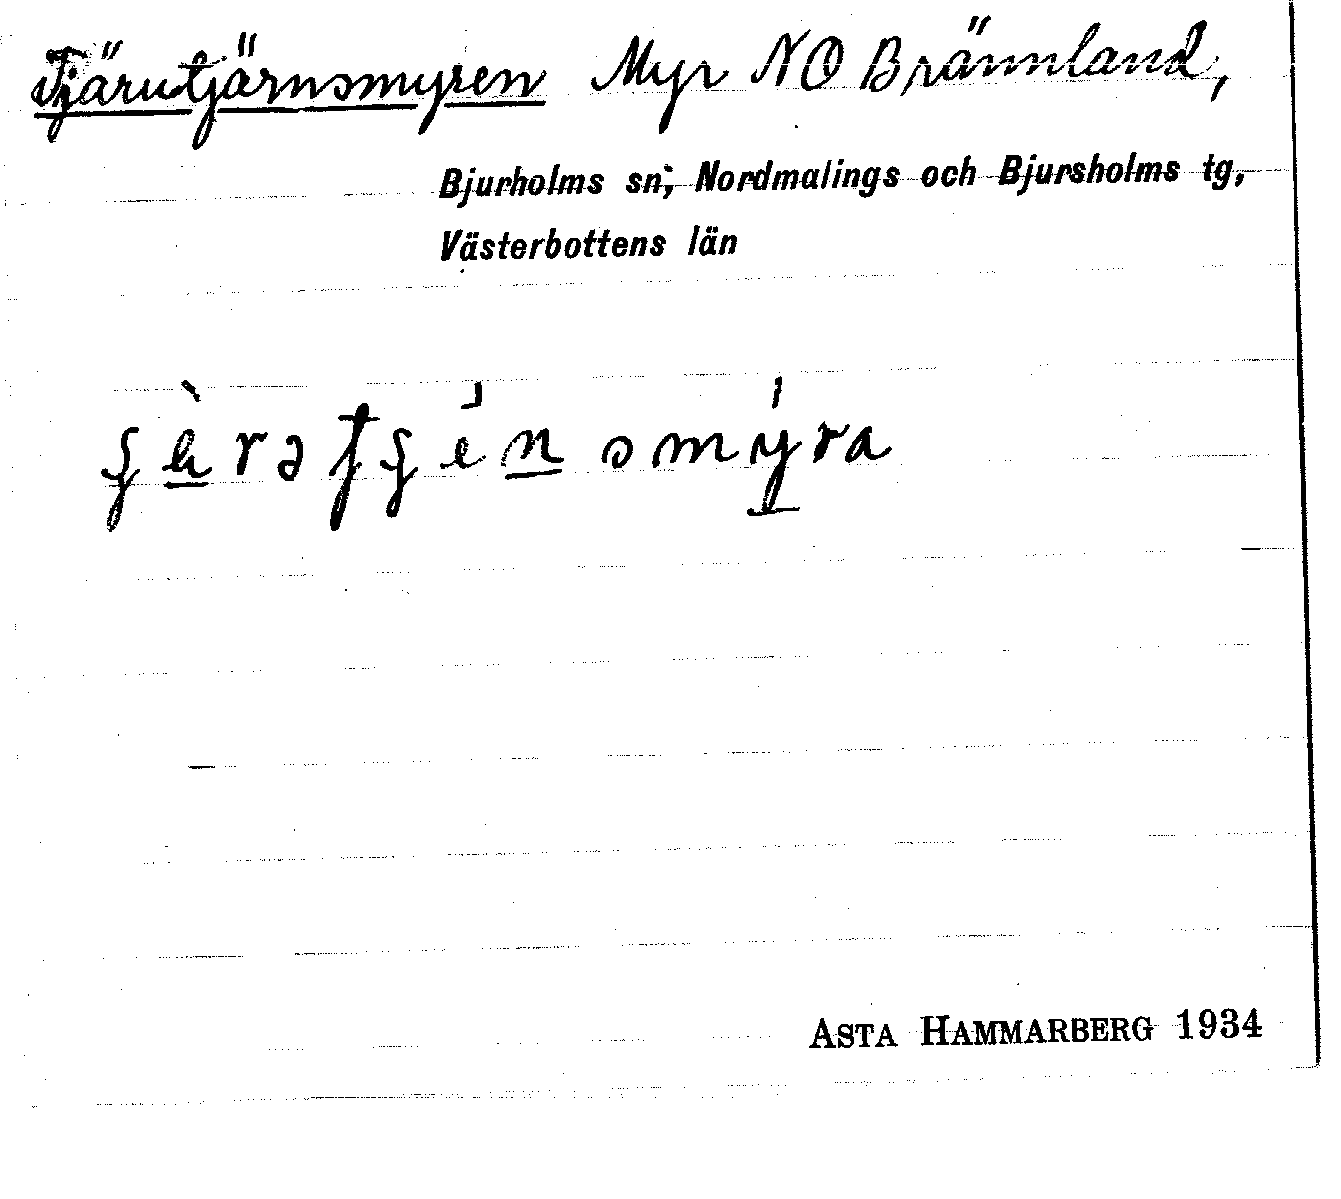 Tjärutjärnsmyren Myr NO Brännland,
Bjurholms sn, Nordmalings och Bjursholms tg,
Västerbottens län
ASTA HAMMARBERG 1934